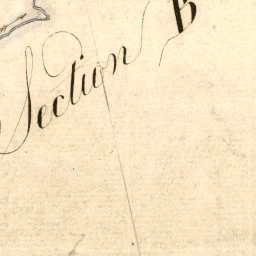 Section B